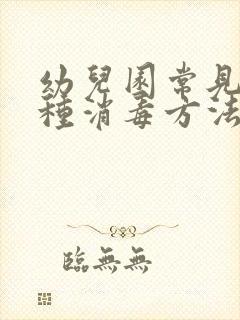 幼兒園常見
種消毒方法
臨無無